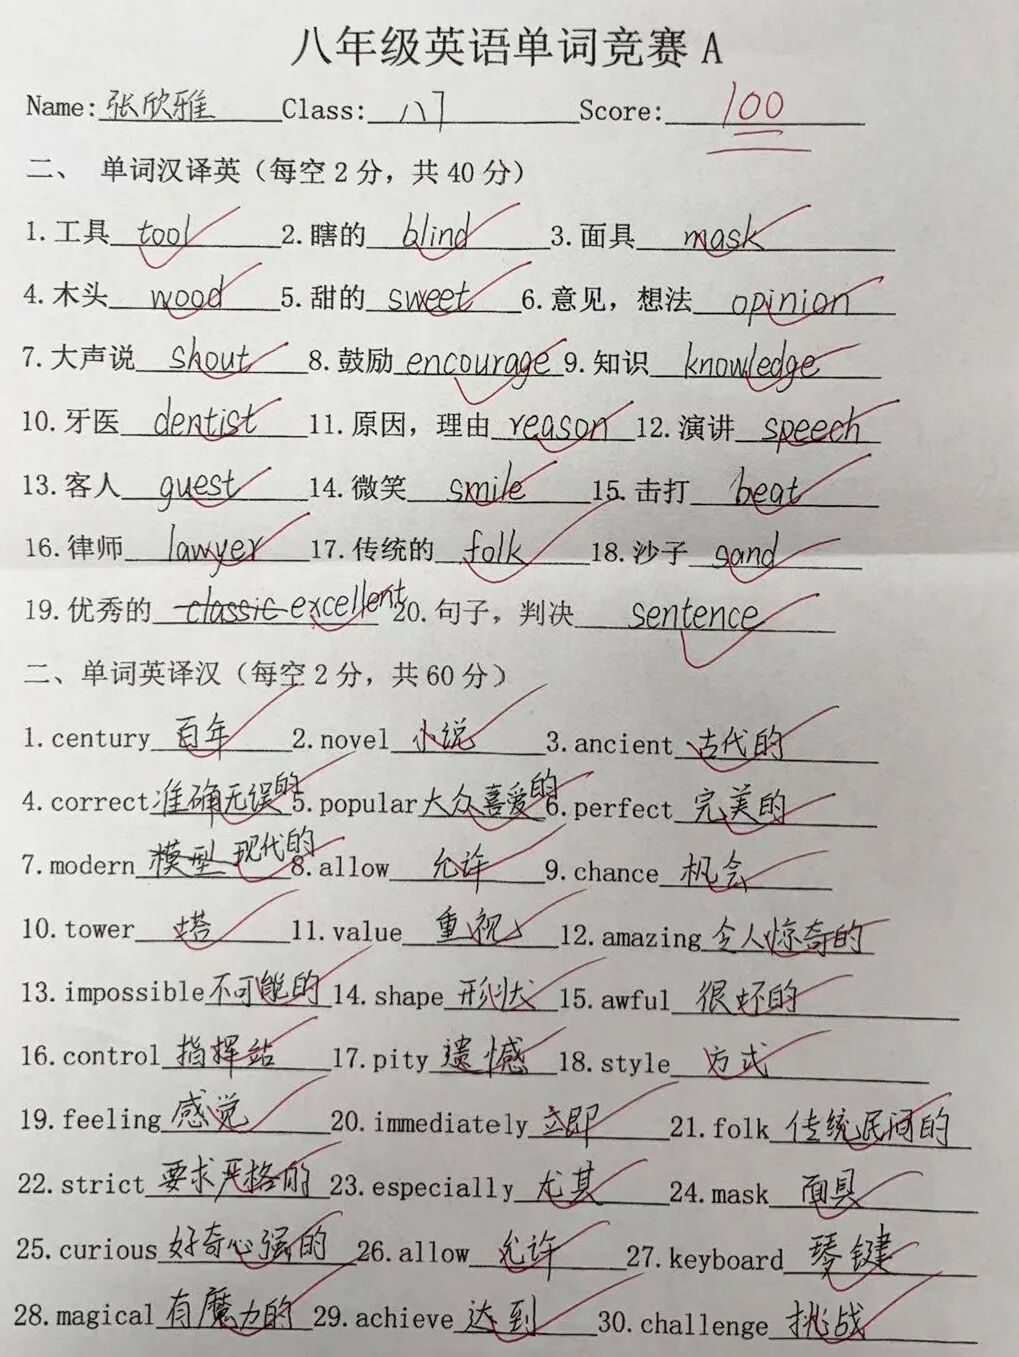 八年级英语单词竞赛 A
Name: 张欣雅 Class: 八7 Score: 100
二、 单词汉译英（每空 2 分，共 40 分）
1. 工具 tool 2. 瞎的 blind 3. 面具 mask
4. 木头 wood 5. 甜的 sweet 6. 意见，想法 opinion
7. 大声说 shout 8. 鼓励 encourage 9. 知识 knowledge
10. 牙医 dentist 11. 原因，理由 reason 12. 演讲 speech
13. 客人 guest 14. 微笑 smile 15. 击打 beat
16. 律师 lawyer 17. 传统的 folk 18. 沙子 sand
19. 优秀的 classic excellent 20. 句子，判决 sentence
二、单词英译汉（每空 2 分，共 60 分）
1. century 百年 2. novel 小说 3. ancient 古代的
4. correct 准确无误的 5. popular 大众喜爱的 6. perfect 完美的
7. modern 模型 现代的 8. allow 允许 9. chance 机会
10. tower 塔 11. value 重视 12. amazing 令人惊奇的
13. impossible 不可能的 14. shape 形状 15. awful 很坏的
16. control 指挥站 17. pity 遗憾 18. style 方式
19. feeling 感觉 20. immediately 立即 21. folk 传统民间的
22. strict 要求严格的 23. especially 尤其 24. mask 面具
25. curious 好奇心强的 26. allow 允许 27. keyboard 琴键
28. magical 有魔力的 29. achieve 达到 30. challenge 挑战